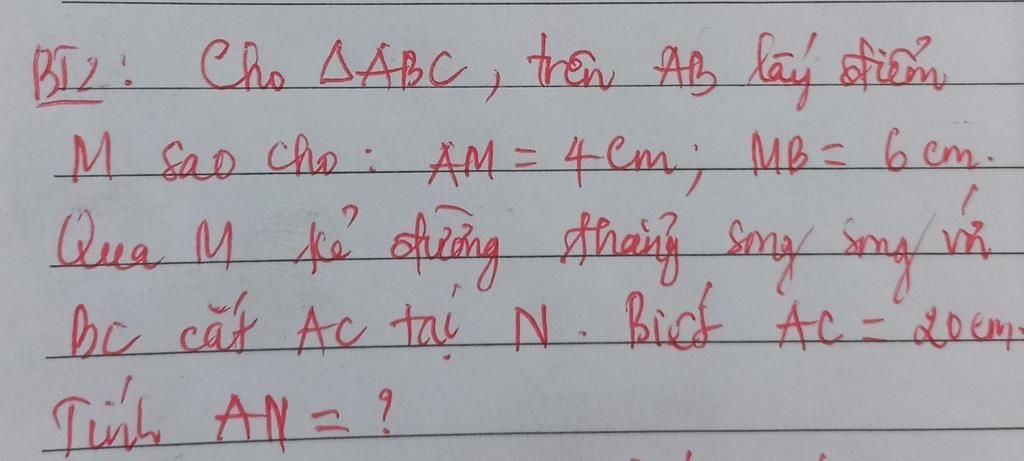 BT2: Cho ΔABC, trên AB lấy điểm
M sao cho: AM = 4 cm; MB = 6 cm.
Qua M kẻ đường thẳng song song với
BC cắt AC tại N. Biết AC = 20cm.
Tính AN = ?